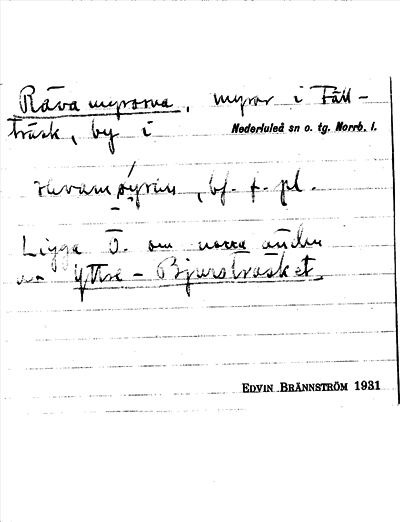 Räva myrorna, myror i Fäll-
träsk, by i Nederluleå sn o. tg. Norrb. l.
, bf. f. pl.
Ligga Ö. om norra änden
av Yttre-Bjursträsket.
EDVIN BRÄNNSTRÖM 1931